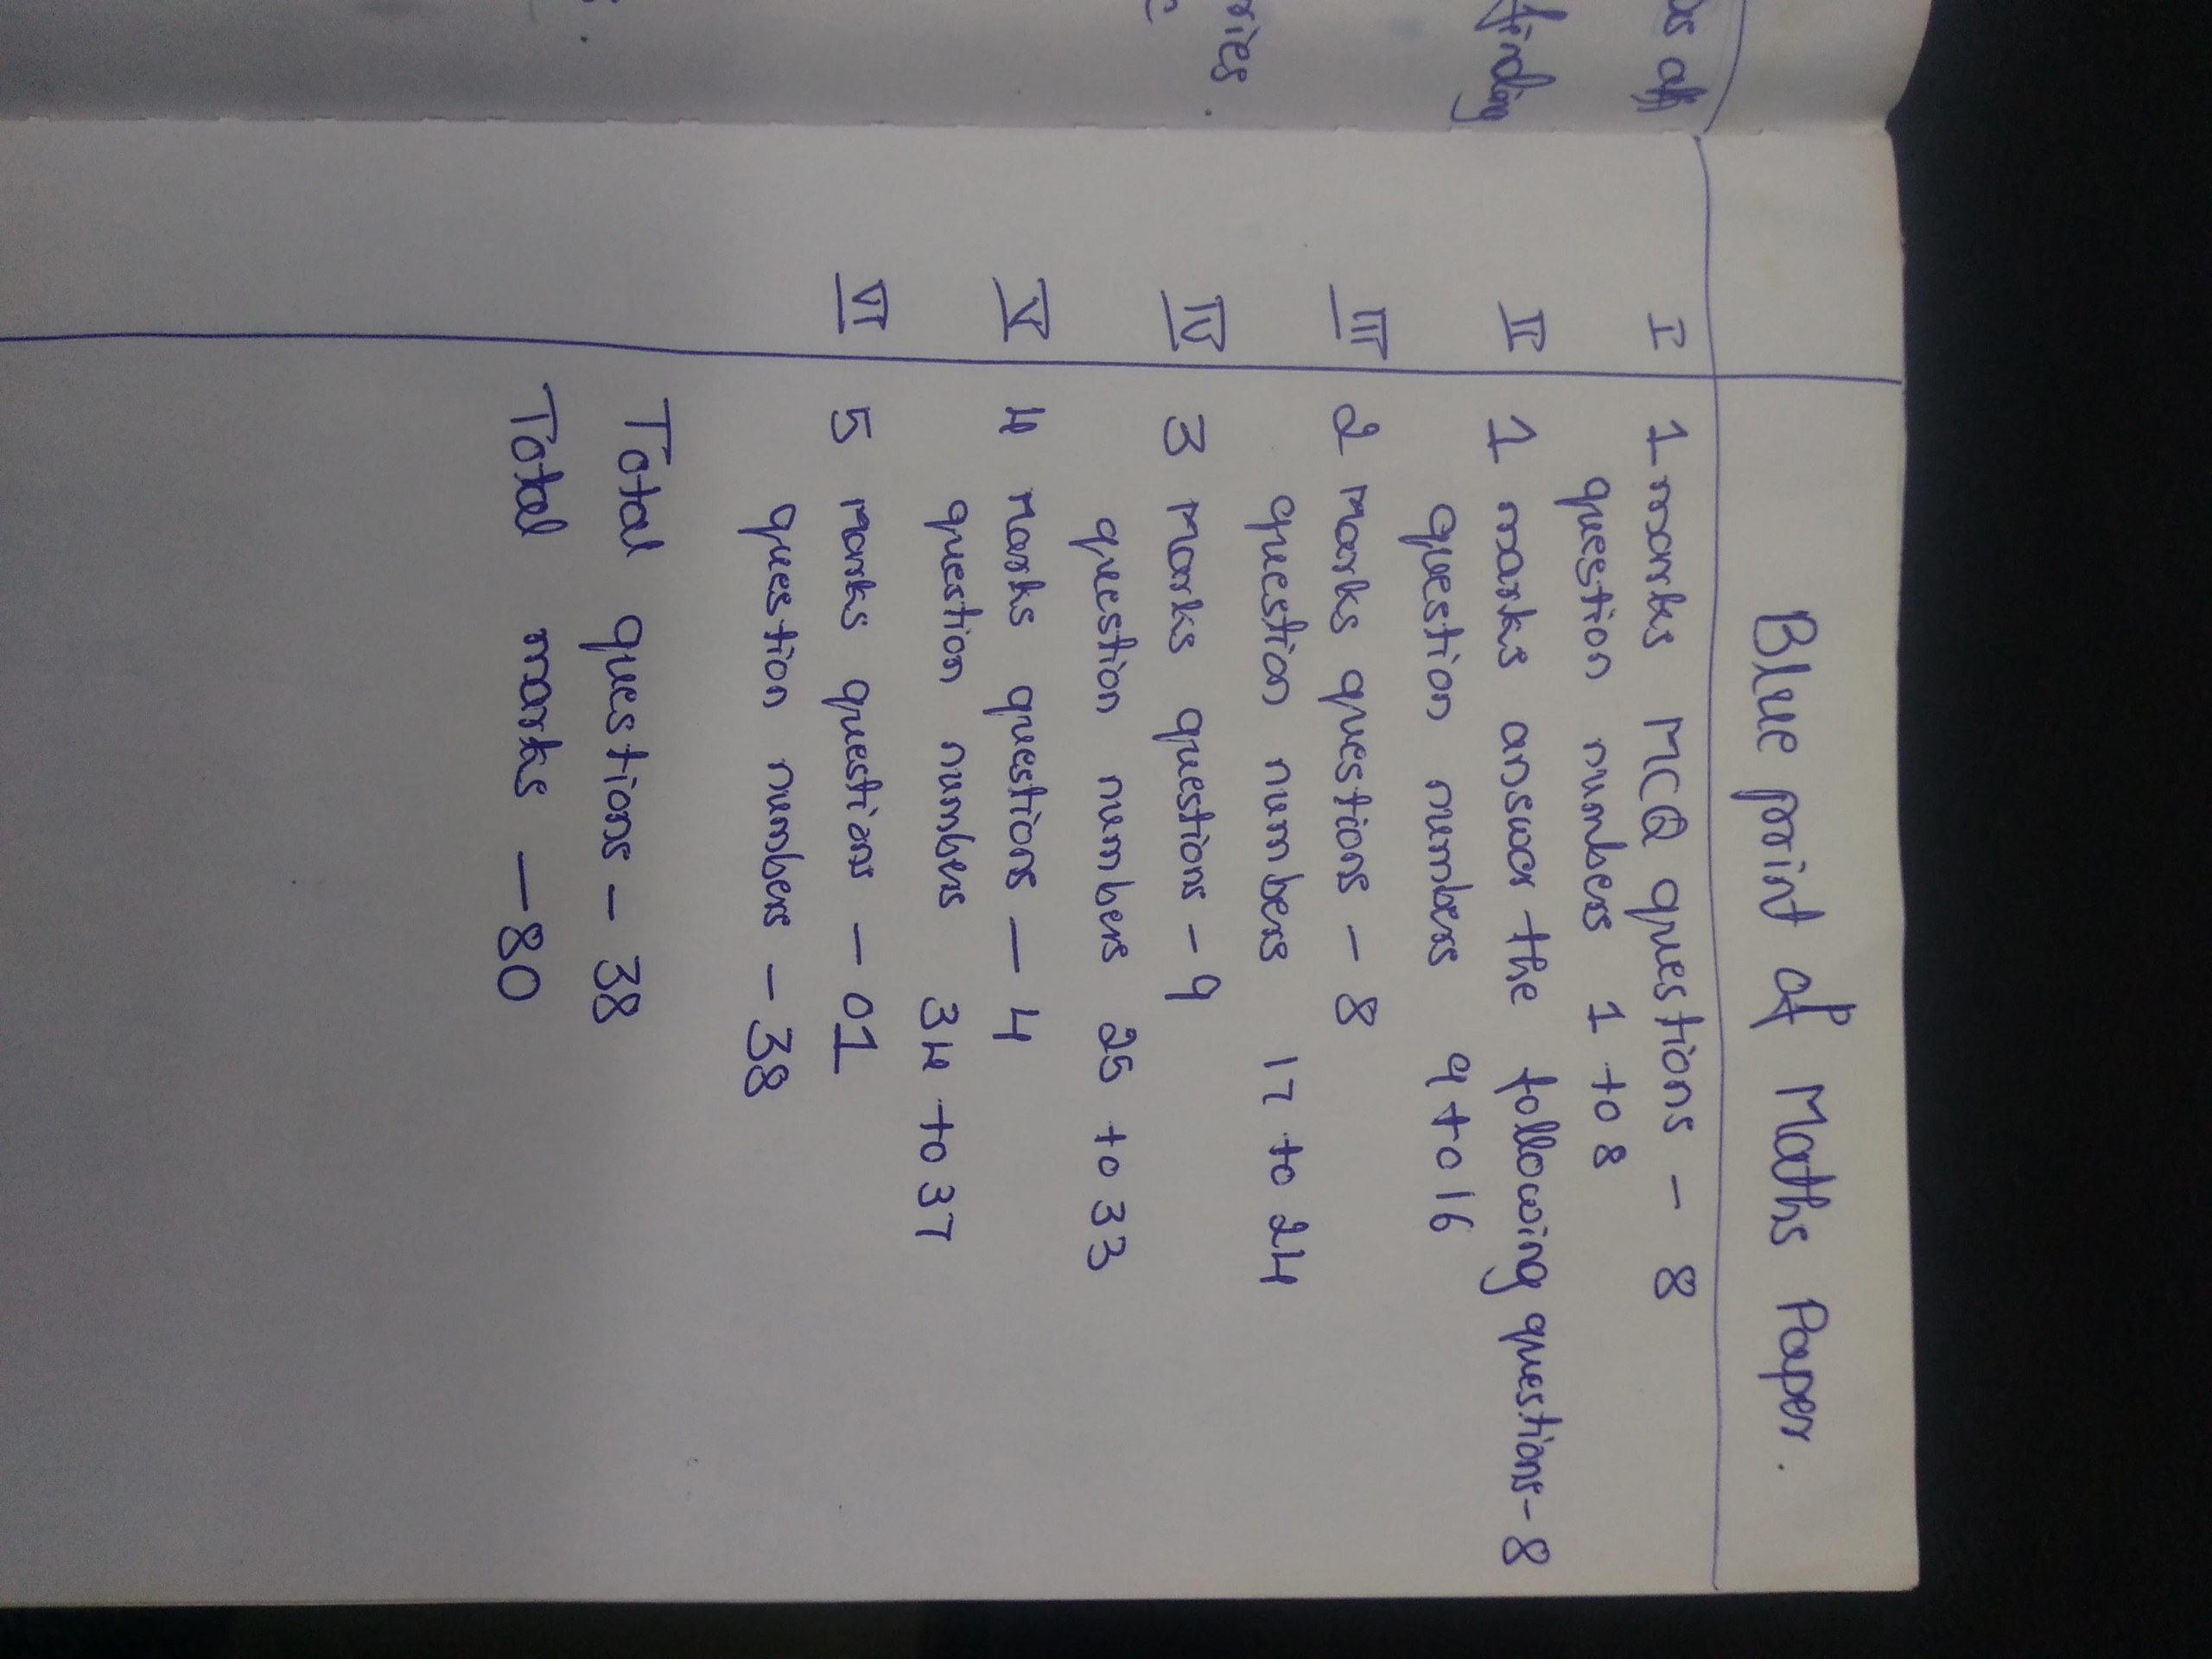 Blue print of Maths Paper.
I 1 marks MCQ questions - 8
question numbers 1 to 8
II 1 marks answer the following questions - 8
question numbers 9 to 16
III 2 marks questions - 8
question numbers 17 to 24
IV 3 marks questions - 9
question numbers 25 to 33
V 4 marks questions - 4
question numbers 34 to 37
VI 5 marks questions - 01
question numbers - 38
Total questions - 38
Total marks - 80
of
finding
ries.